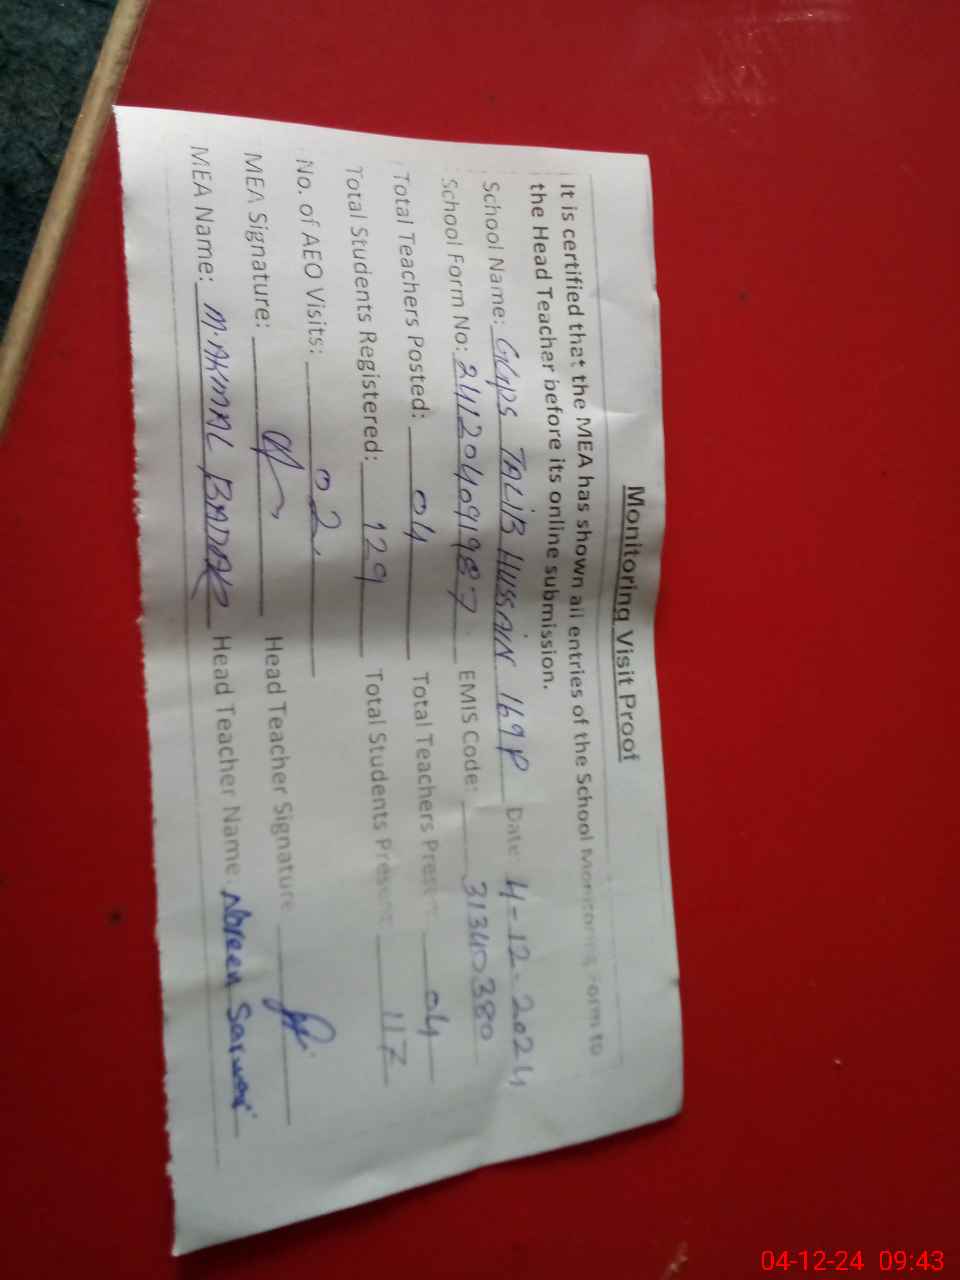 Monitoring Visit Proof
It is certified that the MEA has shown all entries of the School Monitoring Form to
the Head Teacher before its online submission.
School Name: GGPS TALIB HUSSAIN 169P Date: 4-12-2024
School Form No: 241204091987 EMIS Code: 31340380
Total Teachers Posted: 04 Total Teachers Present: 04
Total Students Registered: 129 Total Students Present: 117
No. of AEO Visits: 02
MEA Signature: Head Teacher Signature
MEA Name: M. AKMAL Head Teacher Name: Noreen Sarwar
04-12-24 09:43